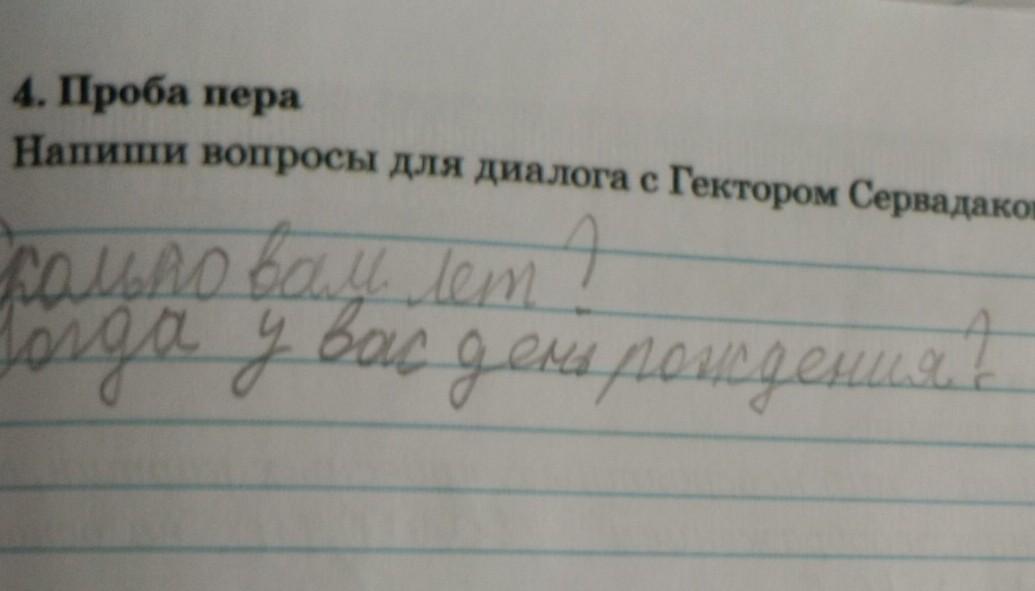 4. Проба пера
Напиши вопросы для диалога с Гектором Сервадако
Сколько вам лет?
Когда у вас день рождения?